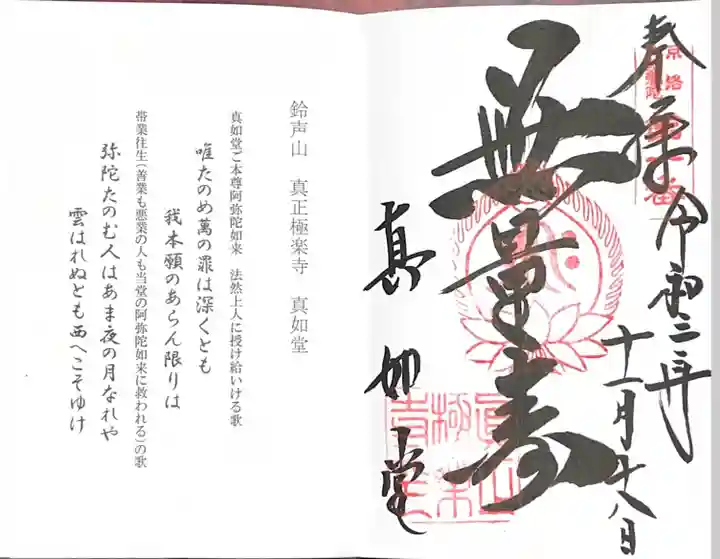 奉拝
令和二年
十一月十八日
無量寿
真如堂
鈴声山　真正極楽寺　真如堂
真如堂ご本尊阿弥陀如来　法然上人に授け給いける歌
唯たのめ萬の罪は深くとも
我本願のあらん限りは
帯業往生(善業も悪業の人も当堂の阿弥陀如来に救われる)の歌
弥陀たのむ人はあま夜の月なれや
雲はれぬとも西へこそゆけ